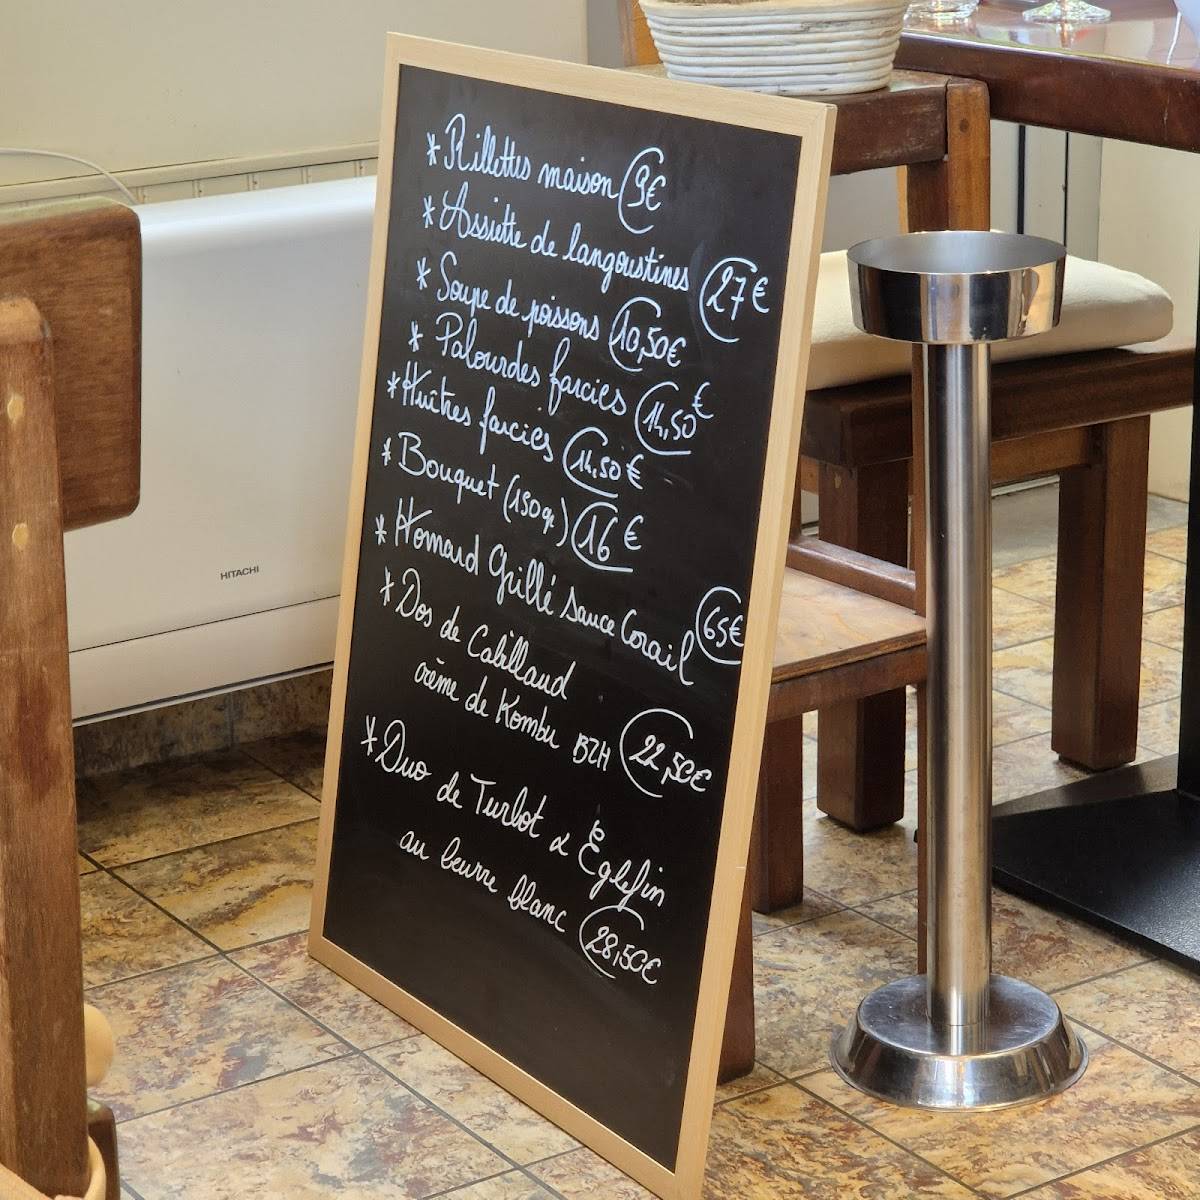 * Rillettes maison 9€
* Assiette de langoustines 27€
* Soupe de poissons 10,50€
* Palourdes farcies 14,50€
* Huîtres farcies 14,50€
* Bouquet (150gr) 16€
* Homard Grillé sauce Corail 65€
* Dos de Cabillaud
crème de Kombu BZH 22,50€
* Duo de Turbot & Églefin
au beurre blanc 28,50€
HITACHI